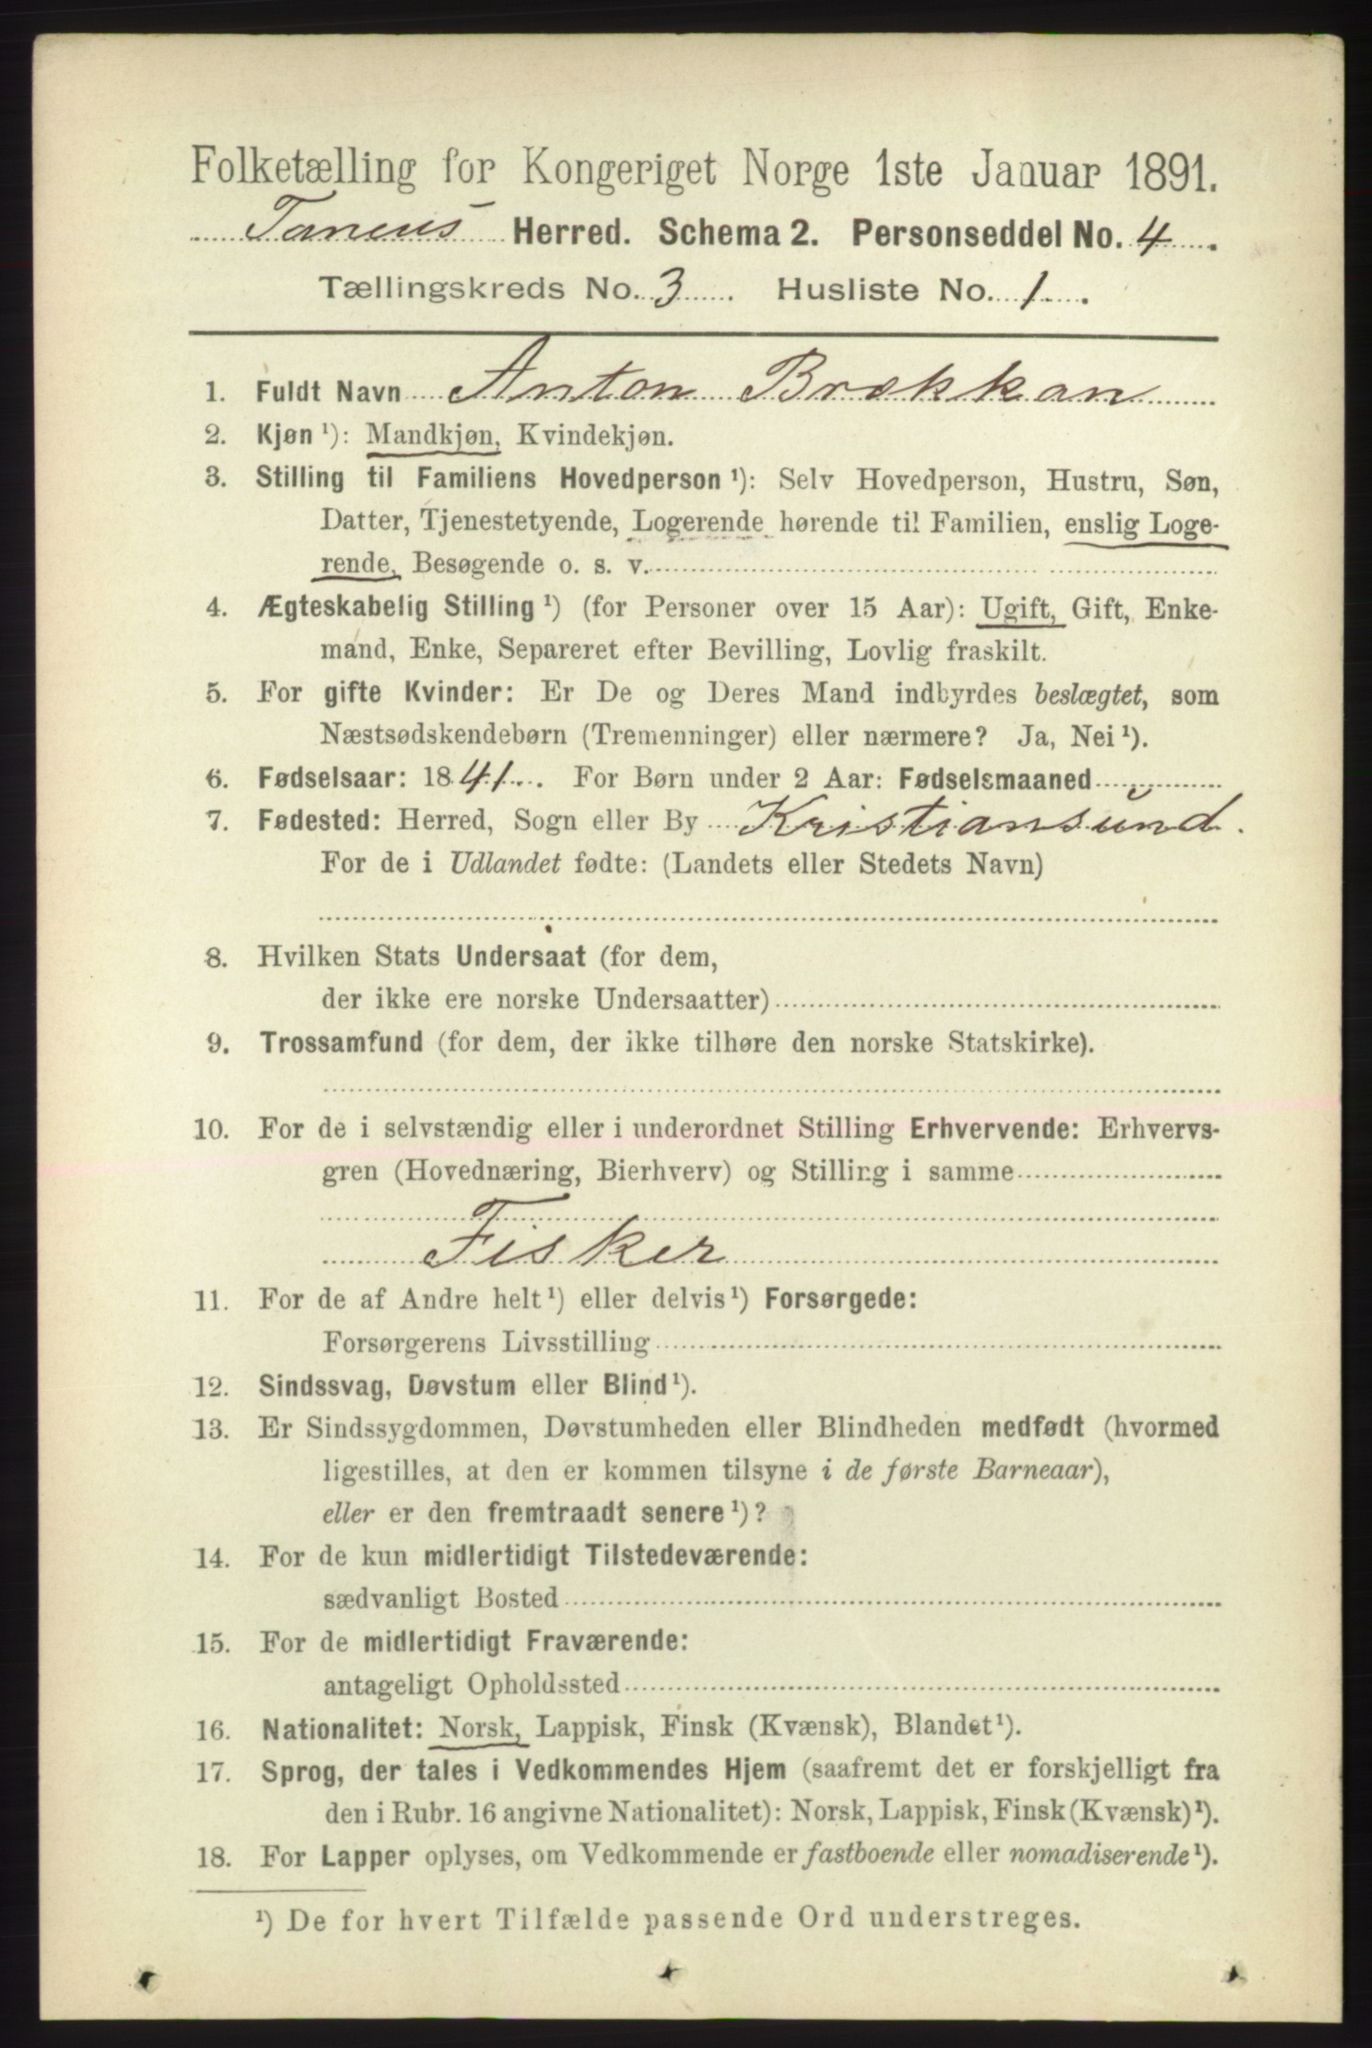 Folketælling for Kongeriget Norge 1ste Januar 1891.
Tanens Herred. Schema 2. Personseddel No. 4.
Tællingskreds No. 3 Husliste No. 1.
1. Fuldt Navn Anton Brækkan
2. Kjøn ¹): Mandkjøn, Kvindekjøn.
3. Stilling til Familiens Hovedperson ¹): Selv Hovedperson, Hustru, Søn,
Datter, Tjenestetyende, Logerende hørende til Familien, enslig Loge-
rende, Besøgende o. s. v.
4. Ægteskabelig Stilling ¹) (for Personer over 15 Aar): Ugift, Gift, Enke-
mand, Enke, Separeret efter Bevilling, Lovlig fraskilt.
5. For gifte Kvinder: Er De og Deres Mand indbyrdes beslægtet, som
Næstsødskendebørn (Tremenninger) eller nærmere? Ja, Nei ¹).
6. Fødselsaar: 1841. For Børn under 2 Aar: Fødselsmaaned
7. Fødested: Herred, Sogn eller By Kristiansund.
For de i Udlandet fødte: (Landets eller Stedets Navn)
8. Hvilken Stats Undersaat (for dem,
der ikke ere norske Undersaatter)
9. Trossamfund (for dem, der ikke tilhøre den norske Statskirke).
10. For de i selvstændig eller i underordnet Stilling Erhvervende: Erhvervs-
gren (Hovednæring, Bierhverv) og Stilling i samme
Fisker
11. For de af Andre helt ¹) eller delvis ¹) Forsørgede:
Forsørgerens Livsstilling
12. Sindssvag, Døvstum eller Blind ¹).
13. Er Sindssygdommen, Døvstumheden eller Blindheden medfødt (hvormed
ligestilles, at den er kommen tilsyne i de første Barneaar),
eller er den fremtraadt senere ¹)?
14. For de kun midlertidigt Tilstedeværende:
sædvanligt Bosted
15. For de midlertidigt Fraværende:
antageligt Opholdssted
16. Nationalitet: Norsk, Lappisk, Finsk (Kvænsk), Blandet ¹).
17. Sprog, der tales i Vedkommendes Hjem (saafremt det er forskjelligt fra
den i Rubr. 16 angivne Nationalitet): Norsk, Lappisk, Finsk (Kvænsk) ¹).
18. For Lapper oplyses, om Vedkommende er fastboende eller nomadiserende ¹).
¹) De for hvert Tilfælde passende Ord understreges.